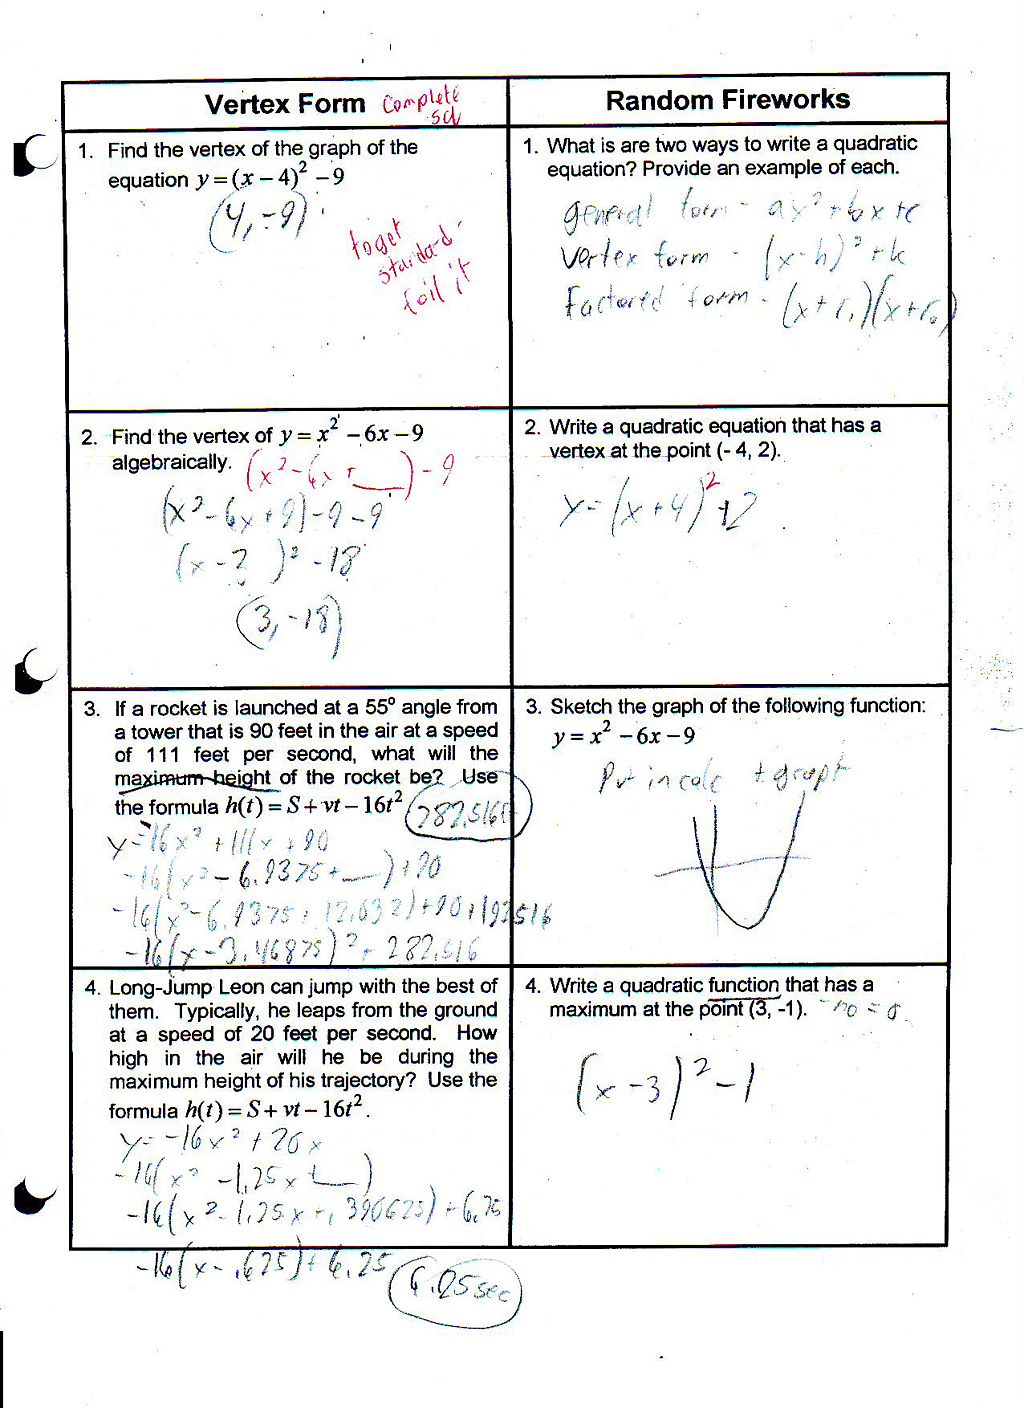 Vertex Form Complete sq
1. Find the vertex of the graph of the
equation y = (x – 4)² – 9
(4, -9)
to get
standard
foil it
2. Find the vertex of y = x² – 6x – 9
algebraically. (x² - 6x + __) - 9
(x² - 6x + 9) - 9 - 9
(x - 3)² - 18
(3, -18)
3. If a rocket is launched at a 55° angle from
a tower that is 90 feet in the air at a speed
of 111 feet per second, what will the
maximum height of the rocket be? Use
the formula h(t) = S + vt – 16t² 282.516
y = -16x² + 111x + 90
-16(x² - 6.9375 + __) + 90
-16(x² - 6.9375 + 12.032) + 90 + 192.516
-16(x - 3.46875)² + 282.516
4. Long-Jump Leon can jump with the best of
them. Typically, he leaps from the ground
at a speed of 20 feet per second. How
high in the air will he be during the
maximum height of his trajectory? Use the
formula h(t) = S + vt – 16t².
y = -16x² + 20x
-16(x² - 1.25x + __)
-16(x² - 1.25x + .390625) + 6.25
-16(x - .625) + 6.25
6.25 sec
Random Fireworks
1. What is are two ways to write a quadratic
equation? Provide an example of each.
general form - ax² + bx + c
Vertex form - (x - h)² + k
Factored form - (x + r₁)(x + r₂)
2. Write a quadratic equation that has a
vertex at the point (- 4, 2).
y = (x + 4)² + 2
3. Sketch the graph of the following function:
y = x² – 6x – 9
Put in calc + graph
4. Write a quadratic function that has a
maximum at the point (3, -1).
(x - 3)² - 1